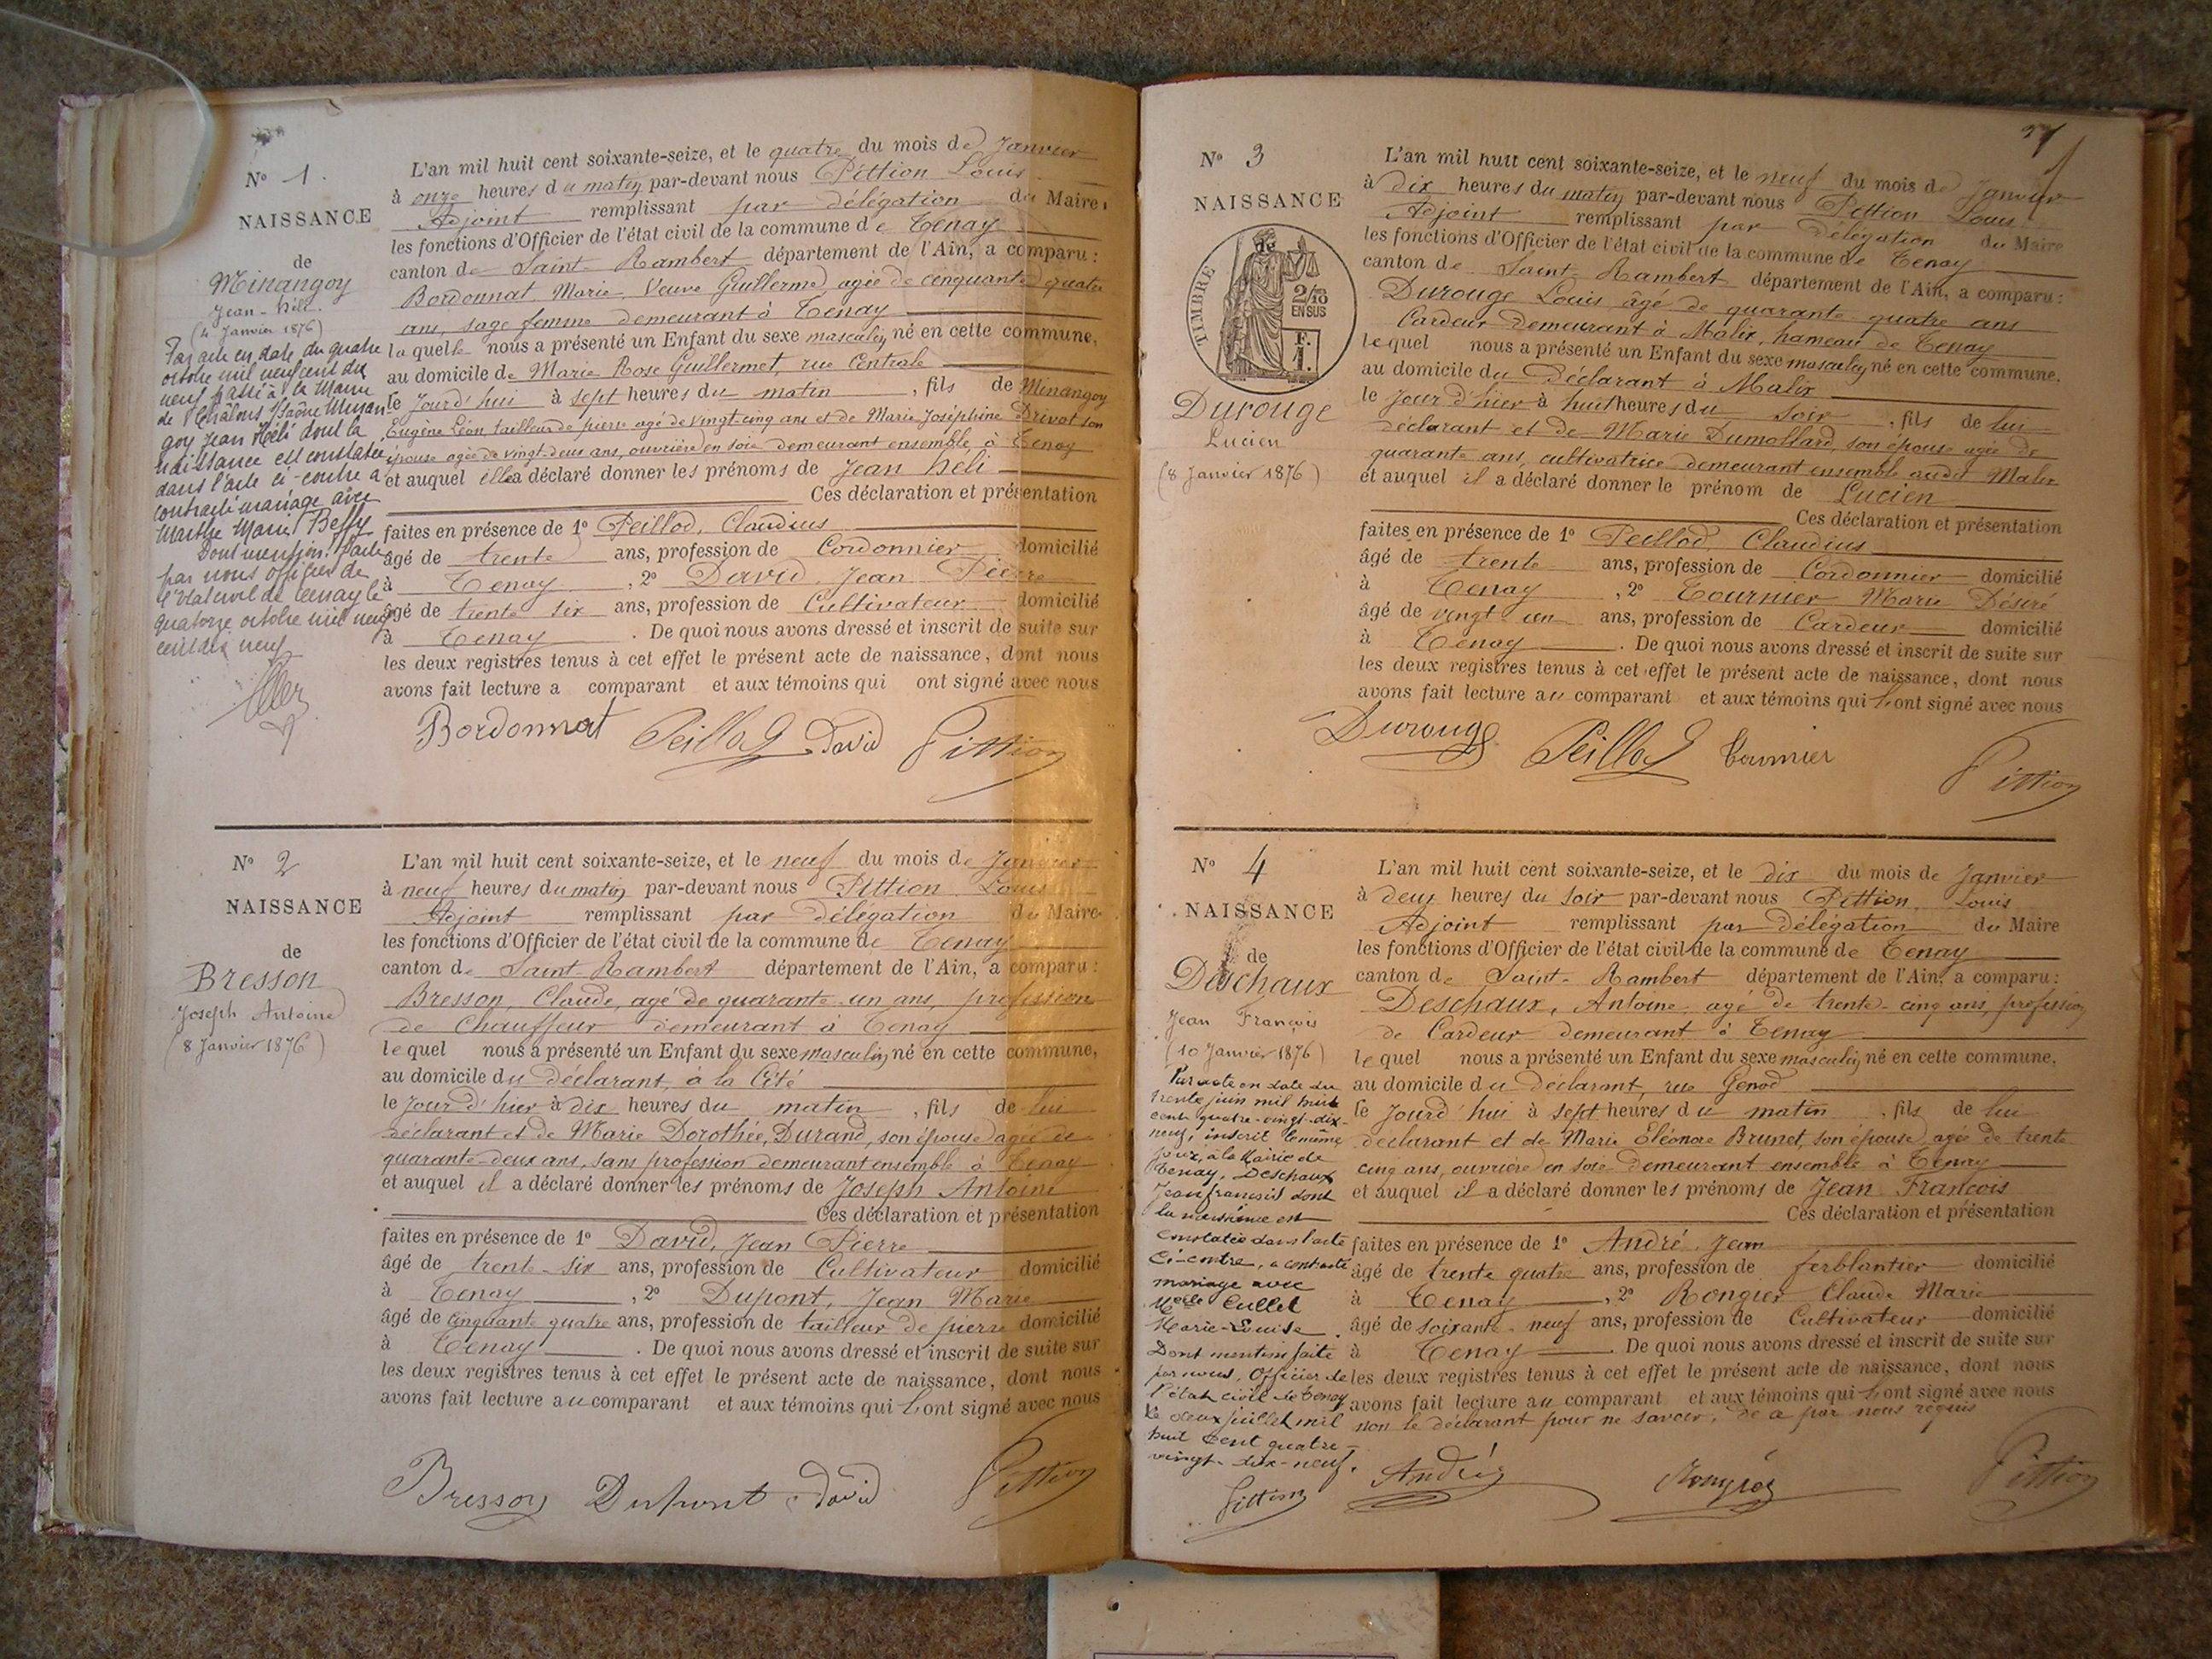 N° 1.
NAISSANCE
de
Minangoy
Jean-Héli
(4 Janvier 1876)
Par acte en date du quatre
octobre mil neuf cent dix
neuf passé à la Mairie
de Châlons s/Saône Minan
goy Jean Héli dont la
naissance est constatée
dans l'acte ci-contre a
contracté mariage avec
Marthe Marie Beffy
Dont mention faite
par nous officier de
l'état civil de Tenay le
quatorze octobre mil neuf
cent dix neuf
L'an mil huit cent soixante-seize, et le quatre du mois de Janvier
à onze heures du matin par-devant nous Pittion Louis
Adjoint remplissant par délégation du Maire,
les fonctions d'Officier de l'état civil de la commune de Tenay
canton de Saint-Rambert département de l'Ain, a comparu :
Bordonnat Marie, Veuve Guillermet agée de cinquante quatre
ans, sage femme demeurant à Tenay
laquelle nous a présenté un Enfant du sexe masculin né en cette commune,
au domicile de Marie Rose Guillermet, rue Centrale
le Jourd'hui à sept heures du matin , fils de Minangoy
Eugène Léon, tailleur de pierre agé de vingt-cinq ans et de Marie Joséphine Drivot son
épouse agée de vingt-deux ans, ouvrière en soie demeurant ensemble à Tenay
et auquel elle a déclaré donner les prénoms de Jean héli
Ces déclaration et présentation
faites en présence de 1° Peillod, Claudius
âgé de trente ans, profession de Cordonnier domicilié
à Tenay , 2° David Jean Pierre
âgé de trente six ans, profession de Cultivateur domicilié
à Tenay . De quoi nous avons dressé et inscrit de suite sur
les deux registres tenus à cet effet le présent acte de naissance, dont nous
avons fait lecture a comparant et aux témoins qui ont signé avec nous
Bordonnat Peillod David Pittion
N° 2
NAISSANCE
de
Bresson
Joseph Antoine
(8 Janvier 1876)
L'an mil huit cent soixante-seize, et le neuf du mois de Janvier
à neuf heures du matin par-devant nous Pittion Louis
Adjoint remplissant par délégation du Maire
les fonctions d'Officier de l'état civil de la commune de Tenay
canton de Saint-Rambert département de l'Ain, a comparu :
Bresson, Claude, agé de quarante-un ans, profession
de Chauffeur demeurant à Tenay
lequel nous a présenté un Enfant du sexe masculin né en cette commune,
au domicile du déclarant, à la Cité
le Jour d'hier à dix heures du matin , fils de lui
déclarant et de Marie Dorothée, Durand, son épouse agée de
quarante-deux ans, sans profession demeurant ensemble à Tenay
et auquel il a déclaré donner les prénoms de Joseph Antoine
Ces déclaration et présentation
faites en présence de 1° David, Jean Pierre
âgé de trente-six ans, profession de Cultivateur domicilié
à Tenay , 2° Dupont, Jean Marie
âgé de cinquante quatre ans, profession de tailleur de pierre domicilié
à Tenay . De quoi nous avons dressé et inscrit de suite sur
les deux registres tenus à cet effet le présent acte de naissance, dont nous
avons fait lecture au comparant et aux témoins qui l'ont signé avec nous
Bresson Dupont David Pittion
N° 3
NAISSANCE
TIMBRE
2/10
EN SUS
F.
1.
Durouge
Lucien
(8 Janvier 1876)
L'an mil huit cent soixante-seize, et le neuf du mois de Janvier
à dix heures du matin par-devant nous Pittion Louis
Adjoint remplissant par Délégation du Maire
les fonctions d'Officier de l'état civil de la commune de Tenay
canton de Saint-Rambert département de l'Ain, a comparu :
Durouge Louis agé de quarante quatre ans
Cardeur demeurant à Malix, hameau de Tenay
lequel nous a présenté un Enfant du sexe masculin né en cette commune,
au domicile du Déclarant à Malix
le Jour d'hier à huit heures du soir , fils de lui
déclarant et de Marie Dumollard, son épouse agée de
quarante ans, cultivatrice demeurant ensemble audit Malix
et auquel il a déclaré donner le prénom de Lucien
Ces déclaration et présentation
faites en présence de 1° Peillod Claudius
âgé de trente ans, profession de Cordonnier domicilié
à Tenay , 2° Tournier Marie Désiré
âgé de vingt un ans, profession de Cardeur domicilié
à Tenay . De quoi nous avons dressé et inscrit de suite sur
les deux registres tenus à cet effet le présent acte de naissance, dont nous
avons fait lecture au comparant et aux témoins qui l'ont signé avec nous
Durouge Peillod Tournier Pittion
N° 4
NAISSANCE
de
Deschaux
Jean François
(10 Janvier 1876)
Par acte en date du
trente juin mil huit
cent quatre-vingt-dix-
neuf, inscrit le même
jour, à la Mairie de
Tenay, Deschaux
Jean françois dont
la naissance est
constatée dans l'acte
ci-contre, a contracté
mariage avec
Melle Cullet
Marie-Louise.
Dont mention faite
par nous, Officier de
l'état civil de Tenay
le deux juillet mil
huit cent quatre-
vingt-dix-neuf.
Pittion
L'an mil huit cent soixante-seize, et le dix du mois de Janvier
à deux heures du soir par-devant nous Pittion Louis
Adjoint remplissant par Délégation du Maire
les fonctions d'Officier de l'état civil de la commune de Tenay
canton de Saint-Rambert département de l'Ain, a comparu :
Deschaux, Antoine agé de trente-cinq ans, profession
de Cardeur demeurant à Tenay
lequel nous a présenté un Enfant du sexe masculin né en cette commune,
au domicile du déclarant, rue Genod
le Jourd'hui à sept heures du matin , fils de lui
déclarant et de Marie Eléonore Brunet, son épouse, agée de trente
cinq ans, ouvrière en soie demeurant ensemble à Tenay
et auquel il a déclaré donner les prénoms de Jean François
Ces déclaration et présentation
faites en présence de 1° André, Jean
âgé de trente quatre ans, profession de ferblantier domicilié
à Tenay , 2° Rongier Claude Marie
âgé de soixante-neuf ans, profession de Cultivateur domicilié
à Tenay . De quoi nous avons dressé et inscrit de suite sur
les deux registres tenus à cet effet le présent acte de naissance, dont nous
avons fait lecture au comparant et aux témoins qui l'ont signé avec nous
non le déclarant pour ne savoir, de a par nous requis
André Rongier Pittion